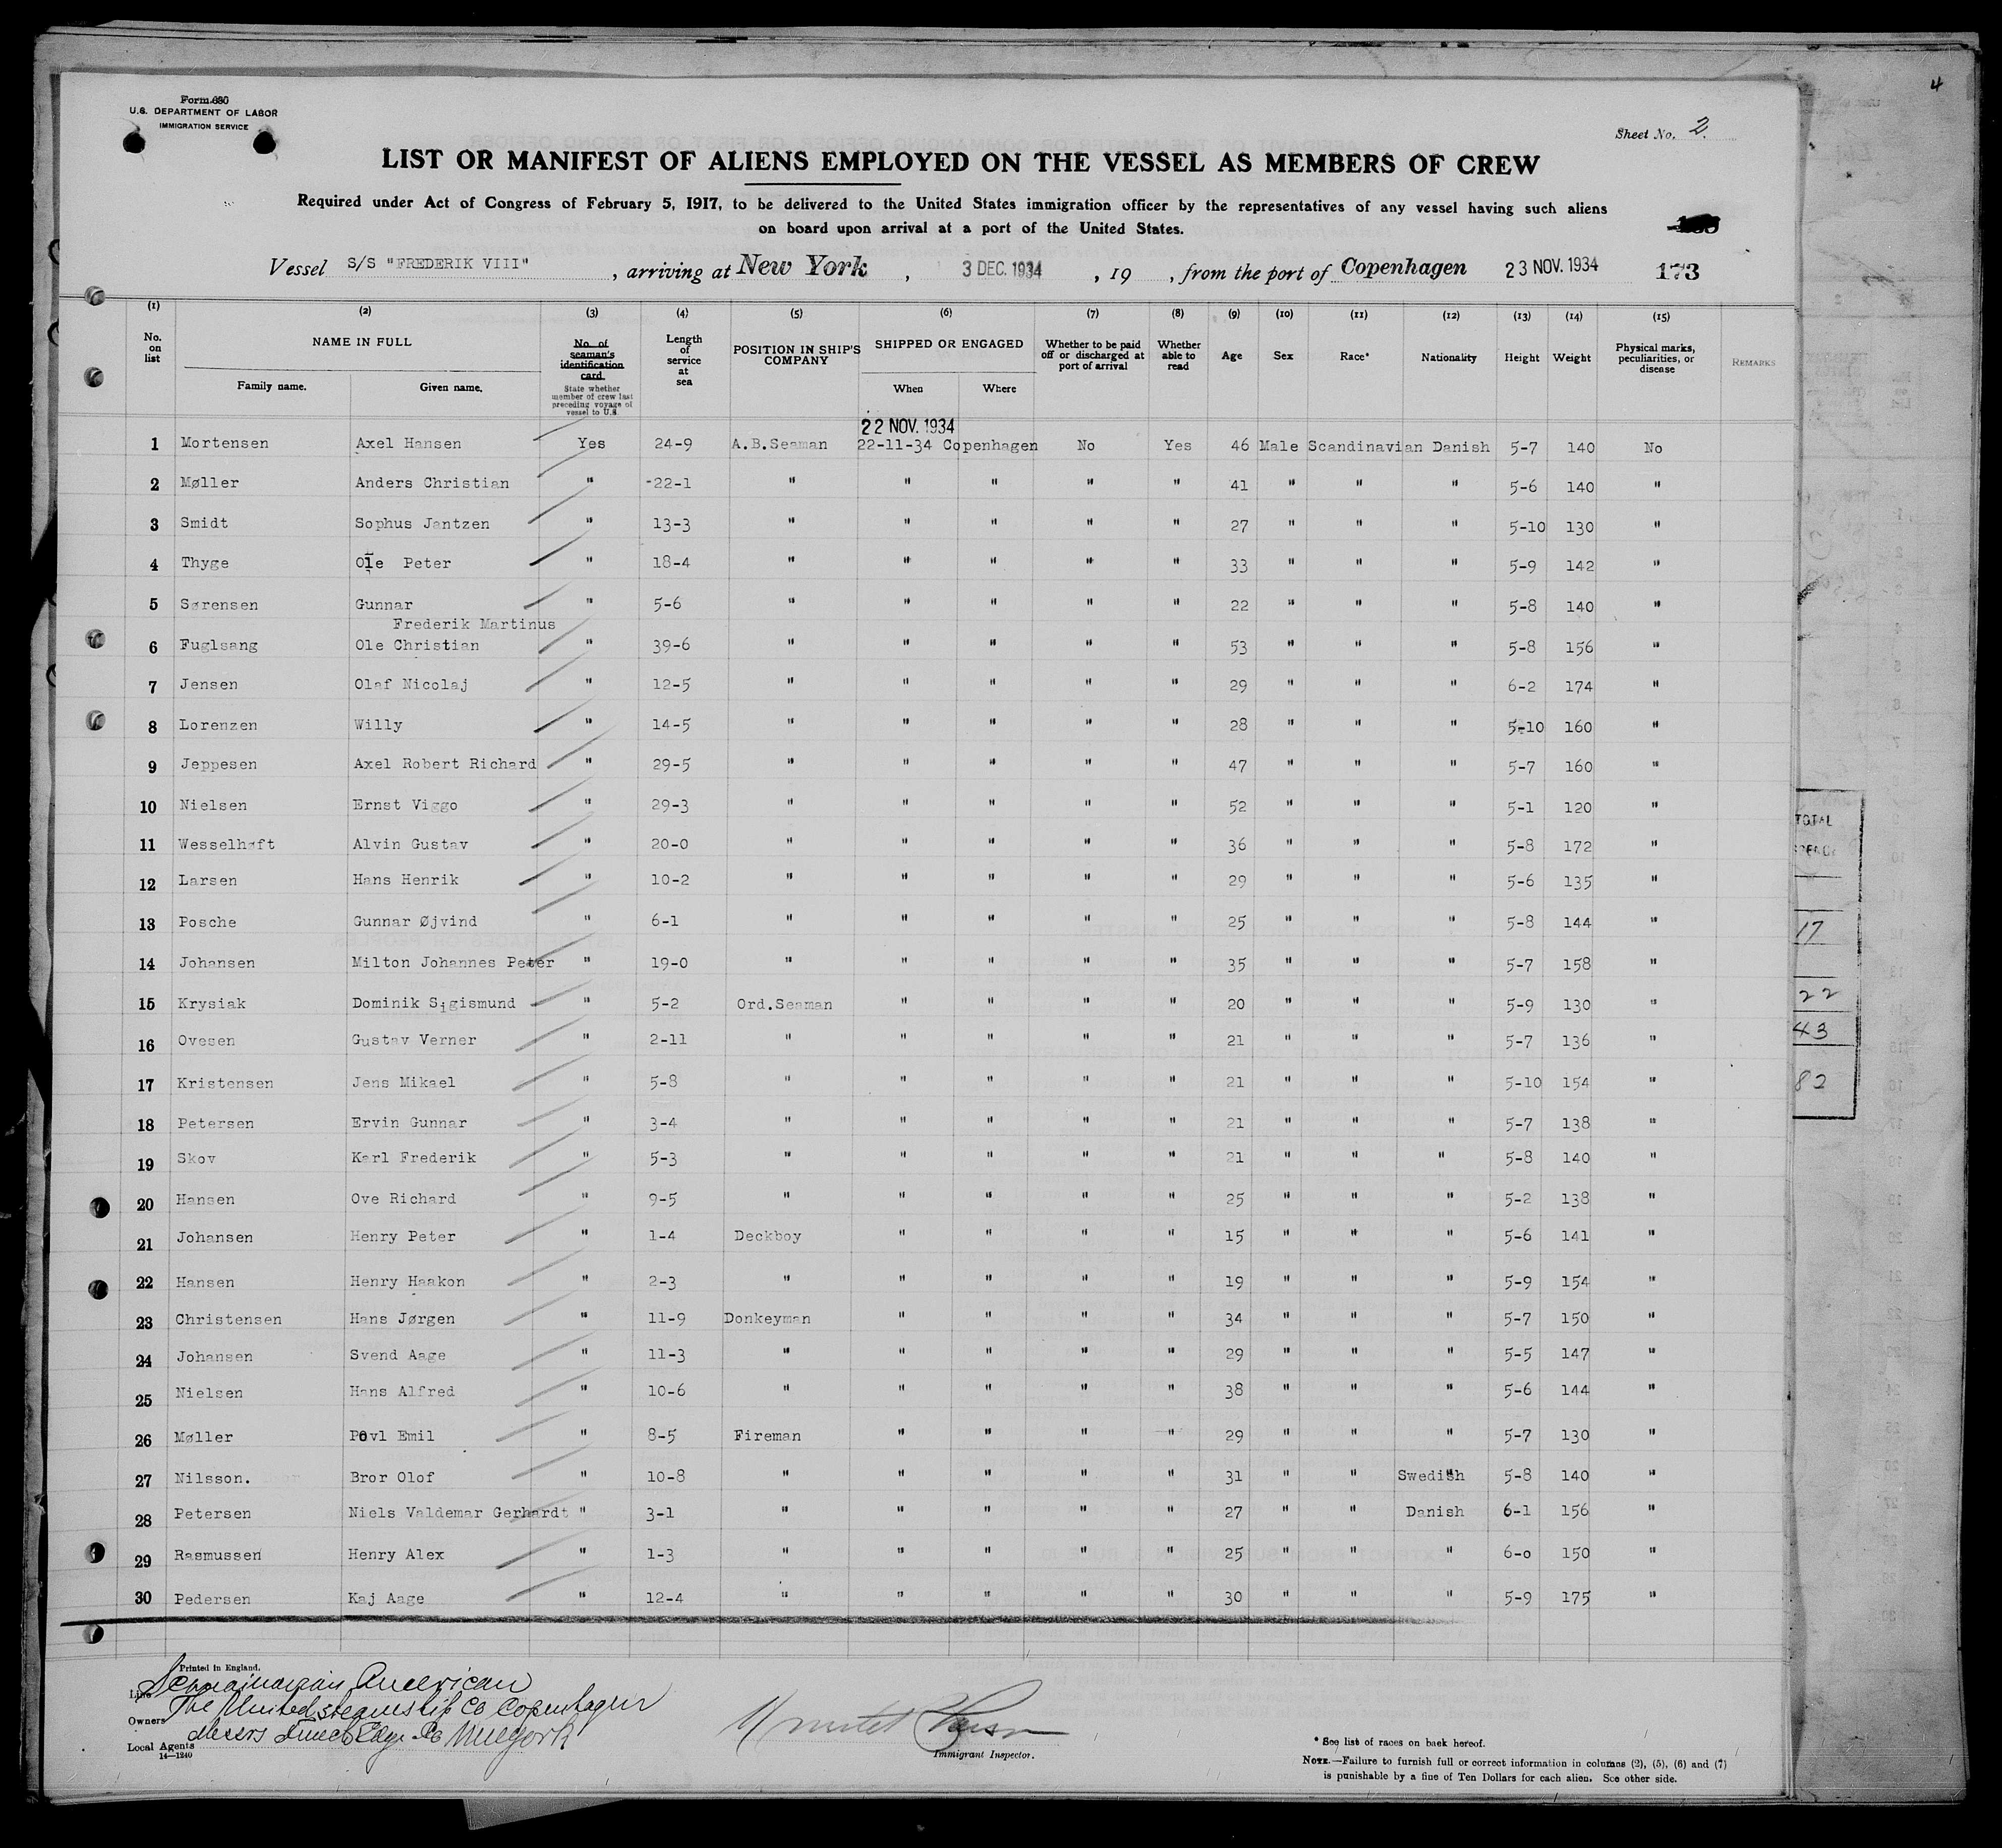 4
Form 680
U.S. DEPARTMENT OF LABOR
IMMIGRATION SERVICE
Sheet No. 2.
LIST OR MANIFEST OF ALIENS EMPLOYED ON THE VESSEL AS MEMBERS OF CREW
Required under Act of Congress of February 5, 1917, to be delivered to the United States immigration officer by the representatives of any vessel having such aliens
on board upon arrival at a port of the United States.
Vessel S/S "FREDERIK VIII", arriving at New York, 3 DEC. 1934, 19 , from the port of Copenhagen 23 NOV. 1934 173
(1) (2) (3) (4) (5) (6) (7) (8) (9) (10) (11) (12) (13) (14) (15)
No. on list NAME IN FULL Family name. Given name. No. of seaman's identification card State whether member of crew last preceding voyage of vessel to U.S. Length of service at sea POSITION IN SHIP'S COMPANY SHIPPED OR ENGAGED When Where Whether to be paid off or discharged at port of arrival Whether able to read Age Sex Race* Nationality Height Weight Physical marks, peculiarities, or disease REMARKS
22 NOV. 1934
1 Mortensen Axel Hansen Yes 24-9 A.B.Seaman 22-11-34 Copenhagen No Yes 46 Male Scandinavian Danish 5-7 140 No
2 Møller Anders Christian " -22-1 " " " " " 41 " " " 5-6 140 "
3 Smidt Sophus Jantzen " 13-3 " " " " " 27 " " " 5-10 130 "
4 Thyge Ole Peter " 18-4 " " " " " 33 " " " 5-9 142 "
5 Sørensen Gunnar " 5-6 " " " " " 22 " " " 5-8 140 "
Frederik Martinus
6 Fuglsang Ole Christian " 39-6 " " " " " 53 " " " 5-8 156 "
7 Jensen Olaf Nicolaj " 12-5 " " " " " 29 " " " 6-2 174 "
8 Lorenzen Willy " 14-5 " " " " " 28 " " " 5-10 160 "
9 Jeppesen Axel Robert Richard " 29-5 " " " " " 47 " " " 5-7 160 "
10 Nielsen Ernst Viggo " 29-3 " " " " " 52 " " " 5-1 120 "
11 Wesselhøft Alvin Gustav " 20-0 " " " " " 36 " " " 5-8 172 "
12 Larsen Hans Henrik " 10-2 " " " " " 29 " " " 5-6 135 "
13 Posche Gunnar Øjvind " 6-1 " " " " " 25 " " " 5-8 144 "
14 Johansen Milton Johannes Peter " 19-0 " " " " " 35 " " " 5-7 158 "
15 Krysiak Dominik Sigismund " 5-2 Ord.Seaman " " " " 20 " " " 5-9 130 "
16 Ovesen Gustav Verner " 2-11 " " " " " 21 " " " 5-7 136 "
17 Kristensen Jens Mikael " 5-8 " " " " " 21 " " " 5-10 154 "
18 Petersen Ervin Gunnar " 3-4 " " " " " 21 " " " 5-7 138 "
19 Skov Karl Frederik " 5-3 " " " " " 21 " " " 5-8 140 "
20 Hansen Ove Richard " 9-5 " " " " " 25 " " " 5-2 138 "
21 Johansen Henry Peter " 1-4 Deckboy " " " " 15 " " " 5-6 141 "
22 Hansen Henry Haakon " 2-3 " " " " " 19 " " " 5-9 154 "
23 Christensen Hans Jørgen " 11-9 Donkeyman " " " " 34 " " " 5-7 150 "
24 Johansen Svend Aage " 11-3 " " " " " 29 " " " 5-5 147 "
25 Nielsen Hans Alfred " 10-6 " " " " " 38 " " " 5-6 144 "
26 Møller Povl Emil " 8-5 Fireman " " " " 29 " " " 5-7 130 "
27 Nilsson. Bror Olof " 10-8 " " " " " 31 " " Swedish 5-8 140 "
28 Petersen Niels Valdemar Gerhardt " 3-1 " " " " " 27 " " Danish 6-1 156 "
29 Rasmussen Henry Alex " 1-3 " " " " " 25 " " " 6-0 150 "
30 Pedersen Kaj Aage " 12-4 " " " " " 30 " " " 5-9 175 "
TOTAL
17
22
43
82
Printed in England.
Line Scandinavian American
Owners The United Steamship Co Copenhagen
Local Agents Messrs Funch Edye Co New York
14—1240
Immigrant Inspector.
* See list of races on back hereof.
NOTE.—Failure to furnish full or correct information in columns (2), (5), (6) and (7)
is punishable by a fine of Ten Dollars for each alien. See other side.